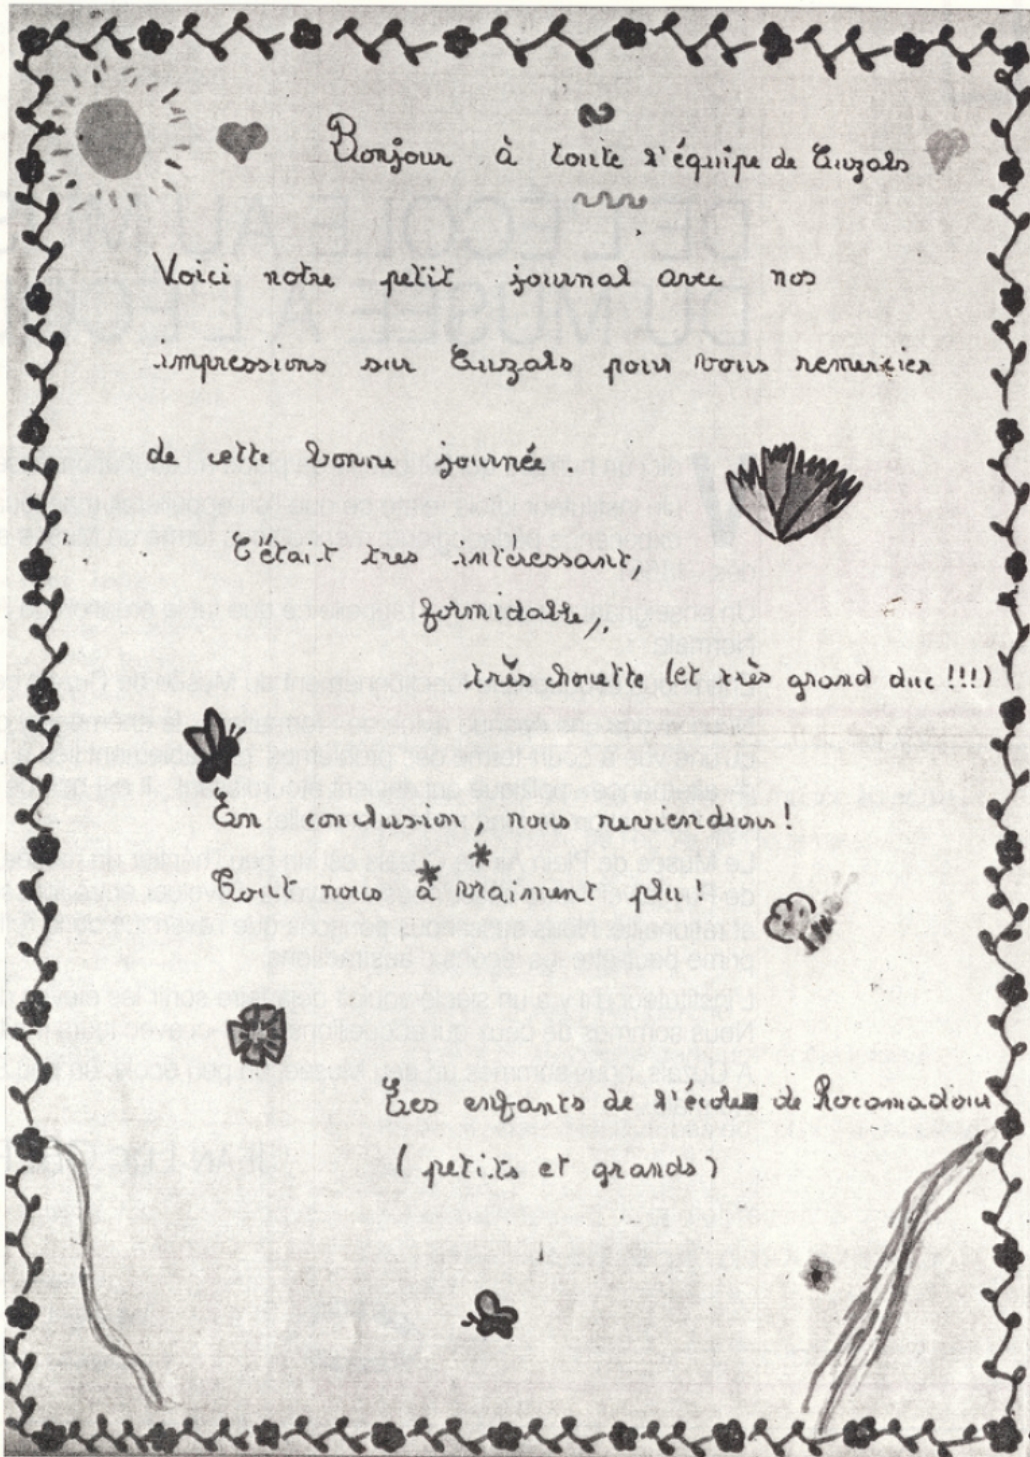 Bonjour à toute l'équipe de Cuzals
Voici notre petit journal avec nos
impressions sur Cuzals pour vous remercier
de cette bonne journée.
C'était tres intéressant,
formidable,
très chouette (et très grand duc !!!)
En conclusion, nous reviendrons!
Tout nous à vraiment plu!
Les enfants de l'école de Rocamadour
(petits et grands)